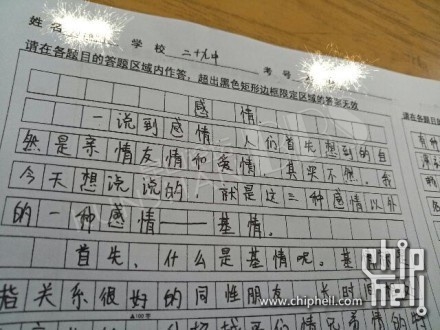 姓名 学校 二十九中 考号
请在各题目的答题区域内作答,超出黑色矩形边框限定区域的答案无效
感情.
一说到感情,人们首先想到的自
然是亲情友情和爱情,其实不然,我
今天想说说的,就是这三种感情以外
的一种感情——基情.
首先,什么是基情呢。基
指关系很好的同性朋友,长时
▲100字
chip hell
www.chiphell.com